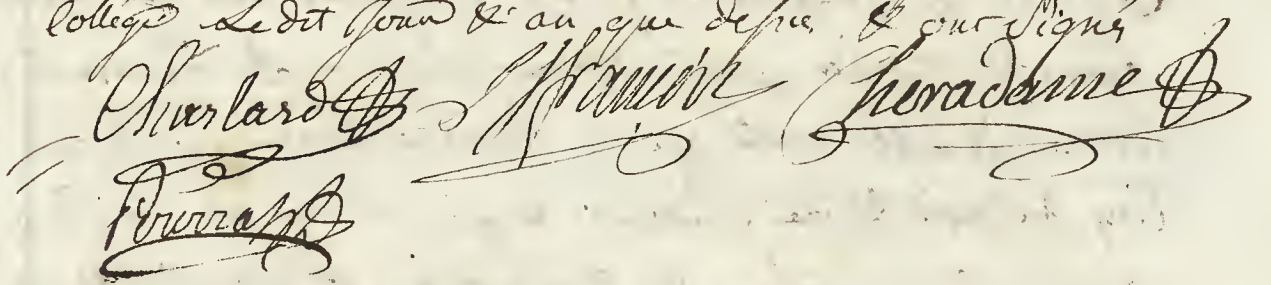 College Ledit jour & an que dessus & ont signé
Charlard François Cheradame
Fourcy